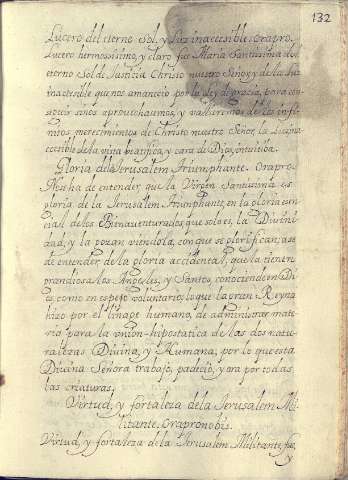 132
Lucero del eterno Sol, y luz inaccesible: orapro.
Lucero hermosissimo, y claro fue Maria Santissima del
eterno Sol de Justicia Christo nuestro Señor, y de la luz
inaccesible que nos amanecio por la ley de gracia, para con
si nos aprovechamos, y valieremos de los infi-
nitos merecimientos de Christo nuestro Señor,
de la vista beatifica, y cara de Dios, intuitiva.
Gloria de la Jerusalem triumphante. Orapro.
Ha de entender, que la Virgen Santissima es
gloria de la Jerusalem triumphante, en la gloria esen-
cial de los Bienaventurados, que solo es, la Divini-
dad, y la gozan viendola, con que se glorifican; a se
de entender, de la gloria accidental, que la tienen
grandiosa los Angeles, y Santos, conociendo en Di-
os, como en espejo voluntario, lo que la gran Reyna
hizo por el linage humano, de administrar mate-
ria para la union hipostatica de las dos natu-
ralezas Divina, y Humana; por lo que esta
Divina Señora trabajó, padeció, y ora por todas
las criaturas.
Virtud, y fortaleza de la Jerusalem Mi-
litante. Orapronobis.
Virtud, y fortaleza de la Jerusalem Militante,
y